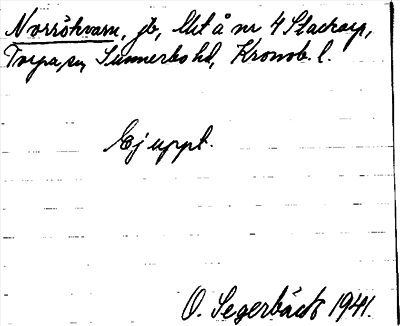 Norråkvarn, jb, lht å nr 4 Stackarp,
Torpa sn, Sunnerbo hd, Kronob. l.
Ej uppt.
O. Segerbäck 1941.